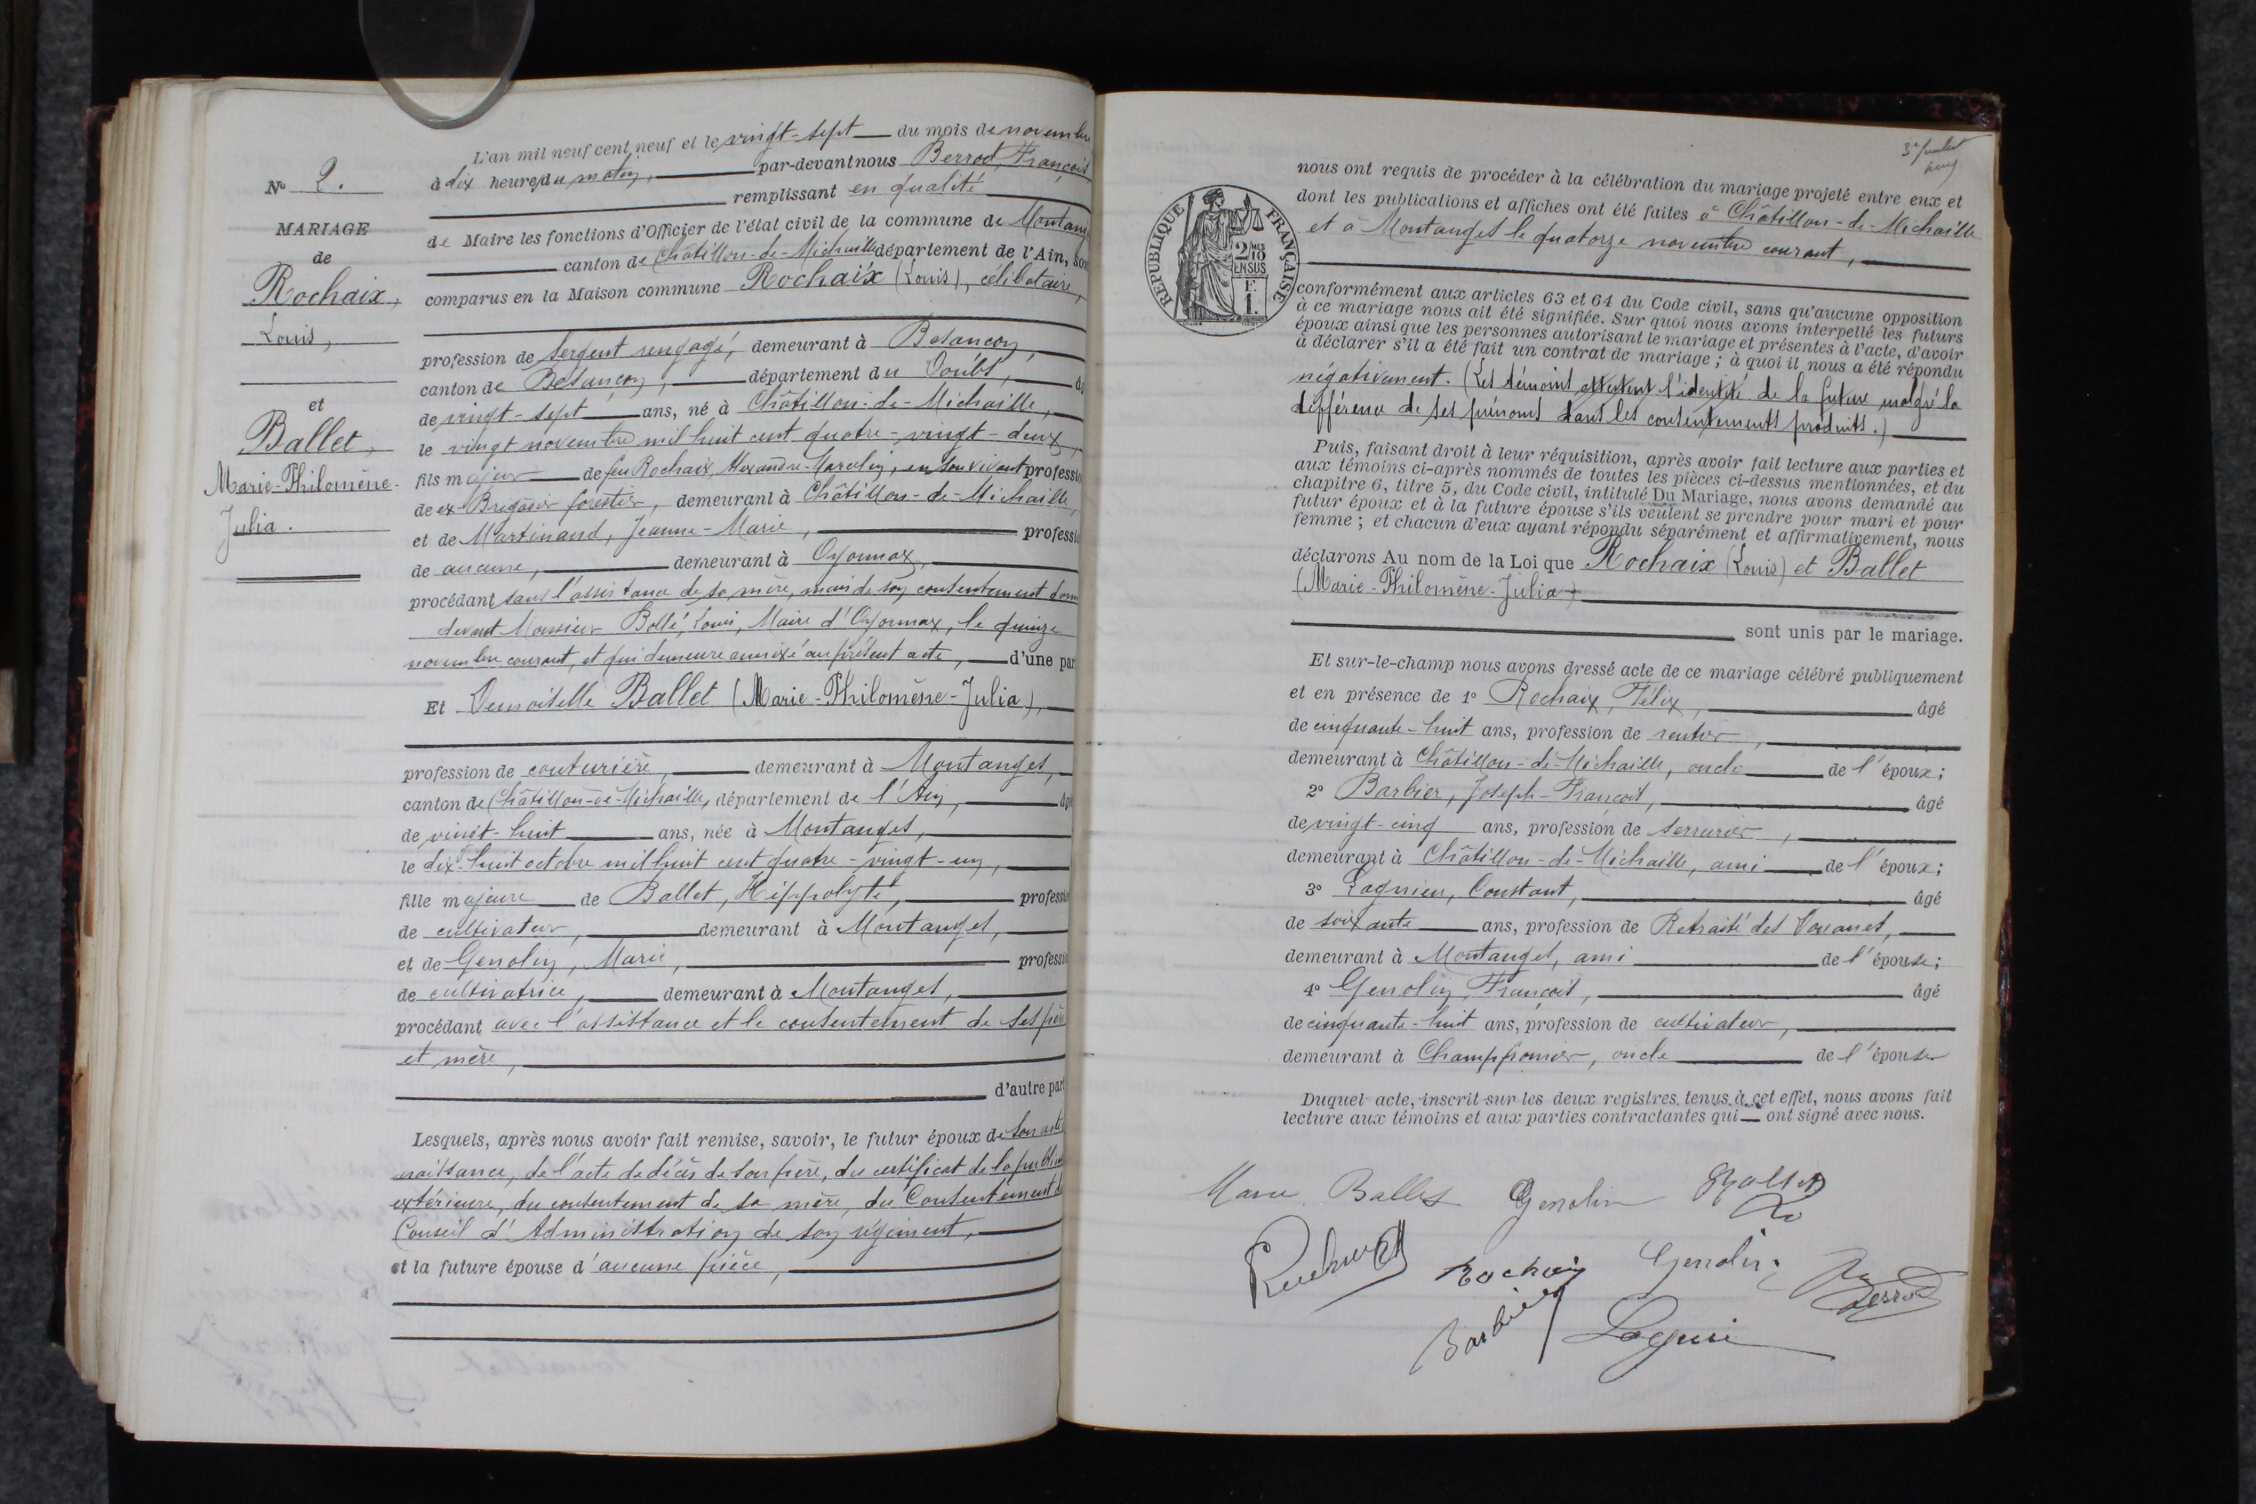 L'an mil neuf cent neuf et le vingt-sept du mois de novembre
à dix heures du matin, par-devant nous Berrod, François
remplissant en qualité
de Maire les fonctions d'Officier de l'état civil de la commune de Montang
canton de Châtillon-de-Michaille département de l'Ain, son
comparus en la Maison commune Rochaix (Louis), célibataire,
profession de sergent rengagé, demeurant à Besançon,
canton de Besançon, département du Doubs,
de vingt-sept ans, né à Châtillon-de-Michaille,
le vingt novembre mil huit cent quatre-vingt-deux,
fils majeur de feu Rochaix, Alexandre-Marcelin, en son vivant professi
de ex-Brigadier forestier, demeurant à Châtillon-de-Michaille,
et de Martinand, Jeanne-Marie, professi
de aucune, demeurant à Oyonnax,
procédant sans l'assistance de sa mère, mais de son consentement donn
devant Monsieur Bollé, Louis, Maire d'Oyonnax, le quinze
novembre courant, et qui demeure annexé au présent acte, d'une par
Et Demoiselle Ballet (Marie-Philomène-Julia),
profession de couturière, demeurant à Montanges,
canton de Châtillon-de-Michaille, département de l'Ain,
de vingt-huit ans, née à Montanges,
le dix-huit octobre mil huit cent quatre-vingt-un,
fille majeure de Ballet, Hippolyte, professi
de cultivateur, demeurant à Montanges,
et de Genolin, Marie, professi
de cultivatrice, demeurant à Montanges,
procédant avec l'assistance et le consentement de ses père
et mère,
d'autre par
Lesquels, après nous avoir fait remise, savoir, le futur époux de son acte
naissance, de l'acte de décès de son père, du certificat de la publica
extérieure, du consentement de sa mère, du Consentement d
Conseil d'Administration de son régiment,
et la future épouse d'aucune pièce,
No 2.
MARIAGE
de
Rochaix,
Louis,
et
Ballet,
Marie-Philomène-
Julia.
nous ont requis de procéder à la célébration du mariage projeté entre eux et
dont les publications et affiches ont été faites à Châtillon-de-Michaille
et à Montanges le quatorze novembre courant,
RÉPUBLIQUE FRANÇAISE
2/10
EN SUS
F.
1.
conformément aux articles 63 et 64 du Code civil, sans qu'aucune opposition
à ce mariage nous ait été signifiée. Sur quoi nous avons interpellé les futurs
époux ainsi que les personnes autorisant le mariage et présentes à l'acte, d'avoir
à déclarer s'il a été fait un contrat de mariage ; à quoi il nous a été répondu
négativement. (Les témoins attestent l'identité de la future malgré la
différence de ses prénoms dans les consentements produits.)
Puis, faisant droit à leur réquisition, après avoir fait lecture aux parties et
aux témoins ci-après nommés de toutes les pièces ci-dessus mentionnées, et du
chapitre 6, titre 5, du Code civil, intitulé Du Mariage, nous avons demandé au
futur époux et à la future épouse s'ils veulent se prendre pour mari et pour
femme ; et chacun d'eux ayant répondu séparément et affirmativement, nous
déclarons Au nom de la Loi que Rochaix (Louis) et Ballet
(Marie-Philomène-Julia)
sont unis par le mariage.
Et sur-le-champ nous avons dressé acte de ce mariage célébré publiquement
et en présence de 1° Rochaix, Félix, âgé
de cinquante-huit ans, profession de rentier,
demeurant à Châtillon-de-Michaille, oncle de l'époux;
2° Barbier, Joseph-François, âgé
de vingt-cinq ans, profession de serrurier,
demeurant à Châtillon-de-Michaille, ami de l'époux;
3° Lagnieu, Constant, âgé
de soixante ans, profession de Retraité des Douanes,
demeurant à Montanges, ami de l'épouse;
4° Genolin, François, âgé
de cinquante-huit ans, profession de cultivateur,
demeurant à Champfromier, oncle de l'épouse
Duquel acte, inscrit sur les deux registres tenus à cet effet, nous avons fait
lecture aux témoins et aux parties contractantes qui ont signé avec nous.
Marie Ballet Genolin
Rochaix Genolin Berrod
Barbier